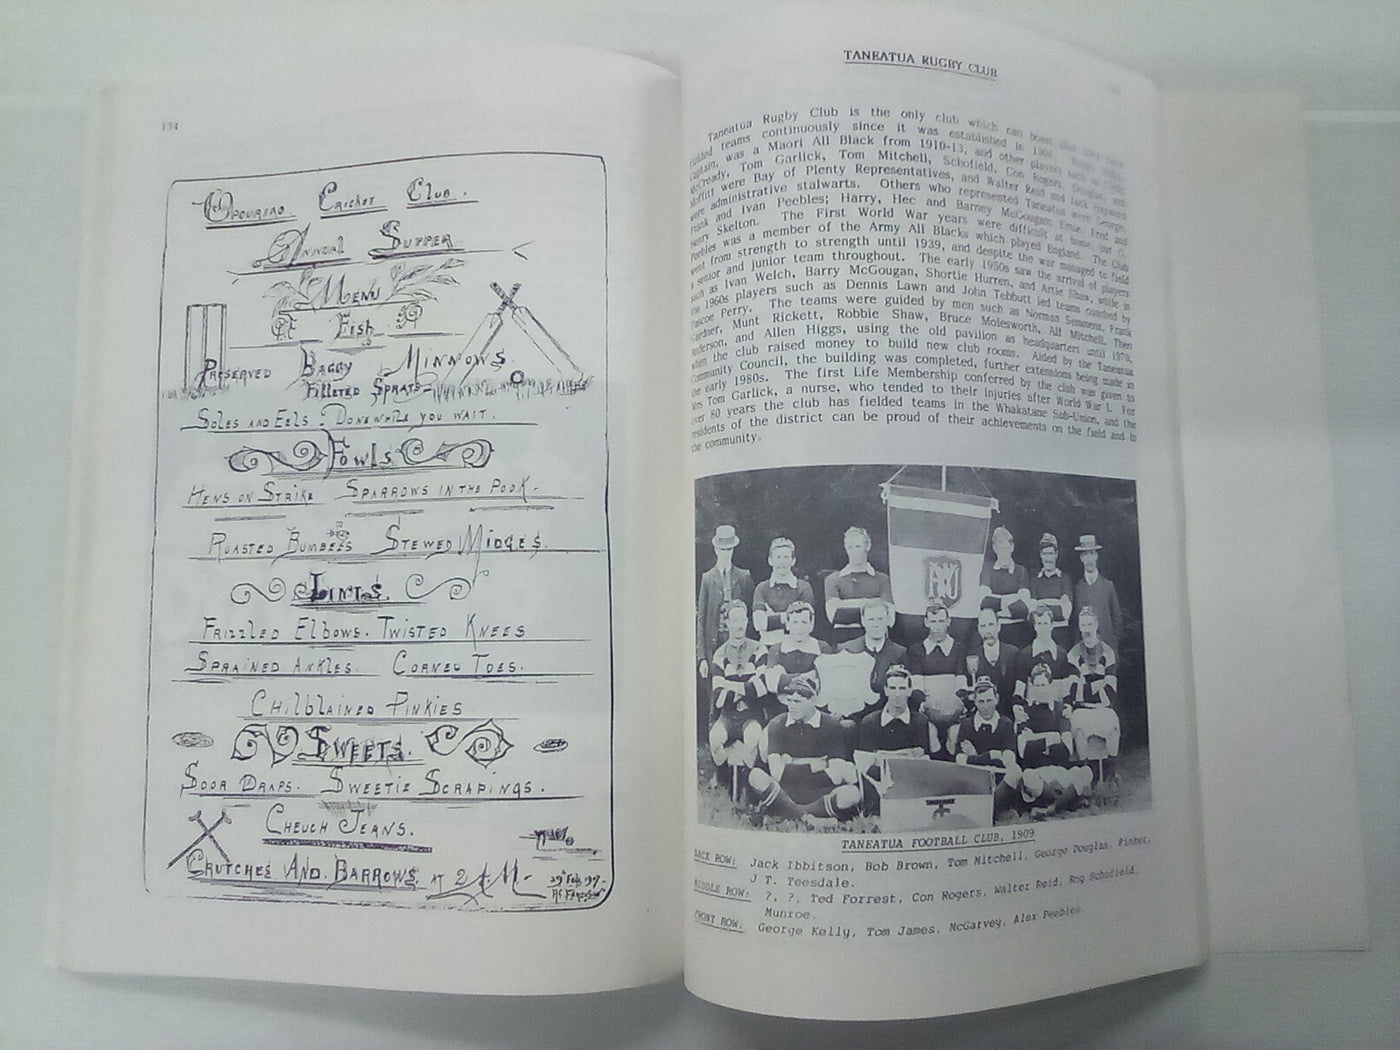 134
Opouriao Cricket Club.
Annual Supper.
Menu
Fish.
Preserved Baggy Minnows.
Filleted Sprats
Soles and Eels. Done while you wait.
Fowls
Hens on Strike Sparrows in the Pook.
Roasted Bumbees Stewed Midges.
Lints.
Frizzled Elbows. Twisted Knees
Sprained Ankles. Corned Toes.
Chilblained Pinkies
Sweets.
Soor Draps. Sweetie Scrapings.
Cheuch Jeans.
Crutches And Barrows at 2 AM.
29 Feb
TANEATUA RUGBY CLUB
Taneatua Rugby Club is the only club which can boast that they have
fielded teams continuously since it was established in
Captain, was a Maori All Black from 1910-13, and other players such as
McCready, Tom Garlick, Tom Mitchell, Schofield, Con Rogers, Douglas, and
Moffitt were Bay of Plenty Representatives, and Walter Reid and Jack Hayward
were administrative stalwarts. Others who represented Taneatua were George,
Frank and Ivan Peebles; Harry, Hec and Barney McGougan; Ernie, Fred and
Henry Skelton. The First World War years were difficult at home, but
Peebles was a member of the Army All Blacks which played England. The Club
went from strength to strength until 1939, and despite the war managed to field
a senior and junior team throughout. The early 1950s saw the arrival of players
such as Ivan Welch, Barry McGougan, Shortie Hurren, and Artie Shaw, while in
the 1960s players such as Dennis Lawn and John Tebbutt led teams coached by
Pascoe Perry. The teams were guided by men such as Norman Semmens, Frank
Gardner, Munt Rickett, Robbie Shaw, Bruce Molesworth, Alf Mitchell, Then
Anderson, and Allen Higgs, using the old pavilion as headquarters until 1970,
when the club raised money to build new club rooms. Aided by the Taneatua
Community Council, the building was completed, further extensions being made in
the early 1980s. The first Life Membership conferred by the club was given to
Mrs Tom Garlick, a nurse, who tended to their injuries after World War I. For
over 80 years the club has fielded teams in the Whakatane Sub-Union, and the
residents of the district can be proud of their achievements on the field and in
the community.
TANEATUA FOOTBALL CLUB, 1909
BACK ROW: Jack Ibbitson, Bob Brown, Tom Mitchell, George Douglas, Pinker,
J T. Teesdale.
MIDDLE ROW: ?, ?, Ted Forrest, Con Rogers, Walter Reid, Rog Schofield,
Munroe.
FRONT ROW: George Kelly, Tom James, McGarvey, Alex Peebles.